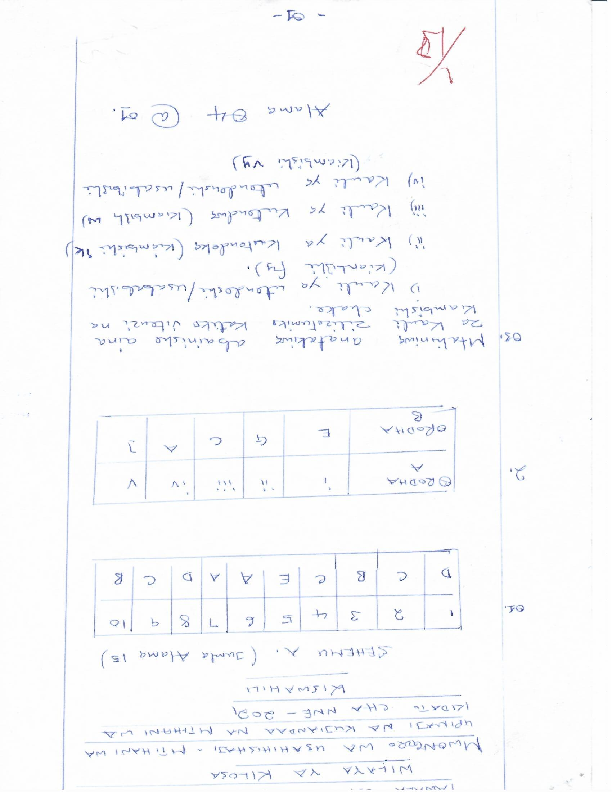 WILAYA YA KILOSA
MWONGOZO WA USAHIHISHAJI - MTIHANI WA
UPIMAJI WA KUJIANDAA NA MTIHANI WA
KIDATO CHA NNE - 2021
KISWAHILI
SEHEMU A. (Jumla Alama 15)
01.
1 2 3 4 5 6 7 8 9 10
D C B C E A A D C B
2.
ORODHA A i ii iii iv v
ORODHA B E G C A J
03. Mtahiniwa anatakiwa abainishe aina
za Kauli zilizotumika katika vitenzi na
Kiambishi chake.
i) Kauli ya utondoshi/usababishi
(Kiambishi fy).
ii) Kauli ya Kutendeka (Kiambishi ik)
iii) Kauli ya Kutendwa (Kiambishi w)
iv) Kauli ya utondoshi/usababishi
(Kiambishi vy)
Alama 04 @ 01.
1/15
- 01 -